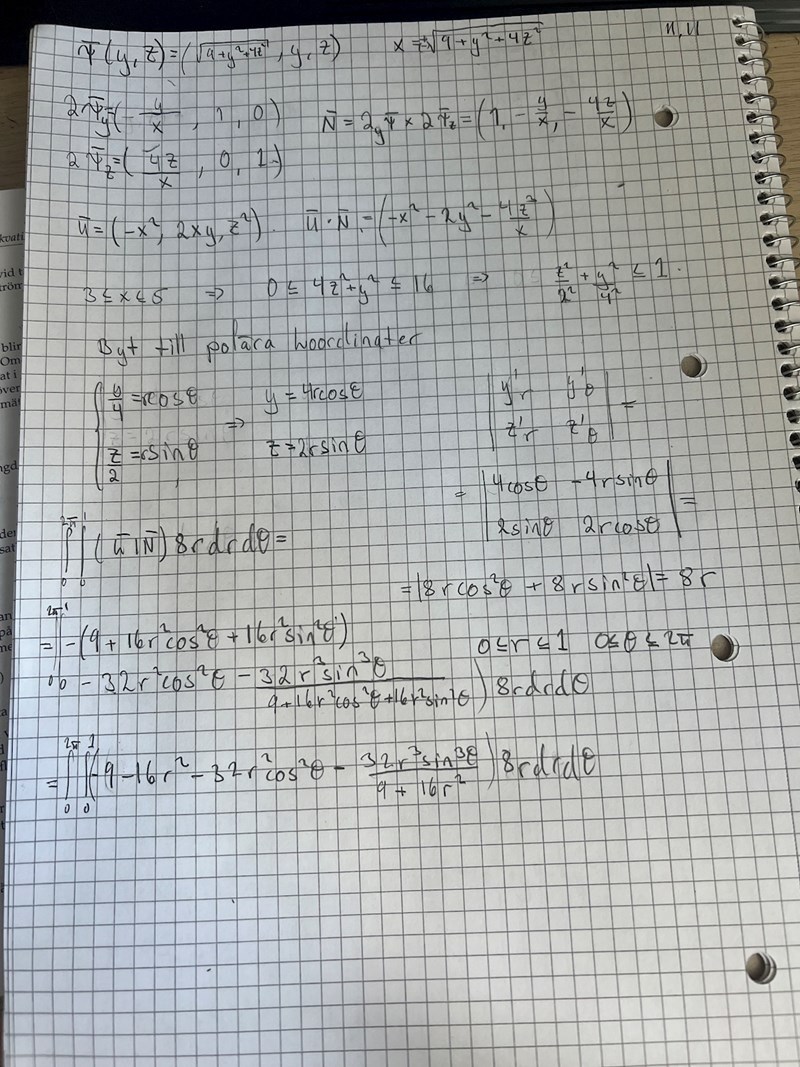 Ψ̄(y, z) = (√(9+y²+4z²), y, z)   x = +√(9+y²+4z²)
∂Ψ̄y = (y/x, 1, 0)   N̄ = ∂yΨ̄ × ∂Ψ̄z = (1, -y/x, -4z/x)
∂Ψ̄z = (4z/x, 0, 1)
ū = (-x², 2xy, z²).   ū · N̄ = (-x² - 2y² - 4z³/x)
3 ≤ x ≤ 5 ⇒ 0 ≤ 4z²+y² ≤ 16 ⇒ z²/2² + y²/4² ≤ 1.
Byt till polära koordinater
{ y/4 = rcosθ ⇒ y = 4rcosθ   | y'r y'θ |
z/2 = rsinθ   z = 2rsinθ   | z'r z'θ | =
= | 4cosθ -4rsinθ |
| 2sinθ 2rcosθ | =
∫₀^2π ∫₀^1 (ū · N̄) 8rdrdθ =
= |8rcos²θ + 8rsin²θ| = 8r
= ∫₀^2π ∫₀^1 (-(9 + 16r²cos²θ + 16r²sin²θ)   0≤r≤1   0≤θ≤2π
- 32r²cos²θ - 32r³sin³θ/(9+16r²cos²θ+16r²sin²θ)) 8rdrdθ
= ∫₀^2π ∫₀^1 (-9 - 16r² - 32r²cos²θ - 32r³sin³θ/(9 + 16r²)) 8rdrdθ